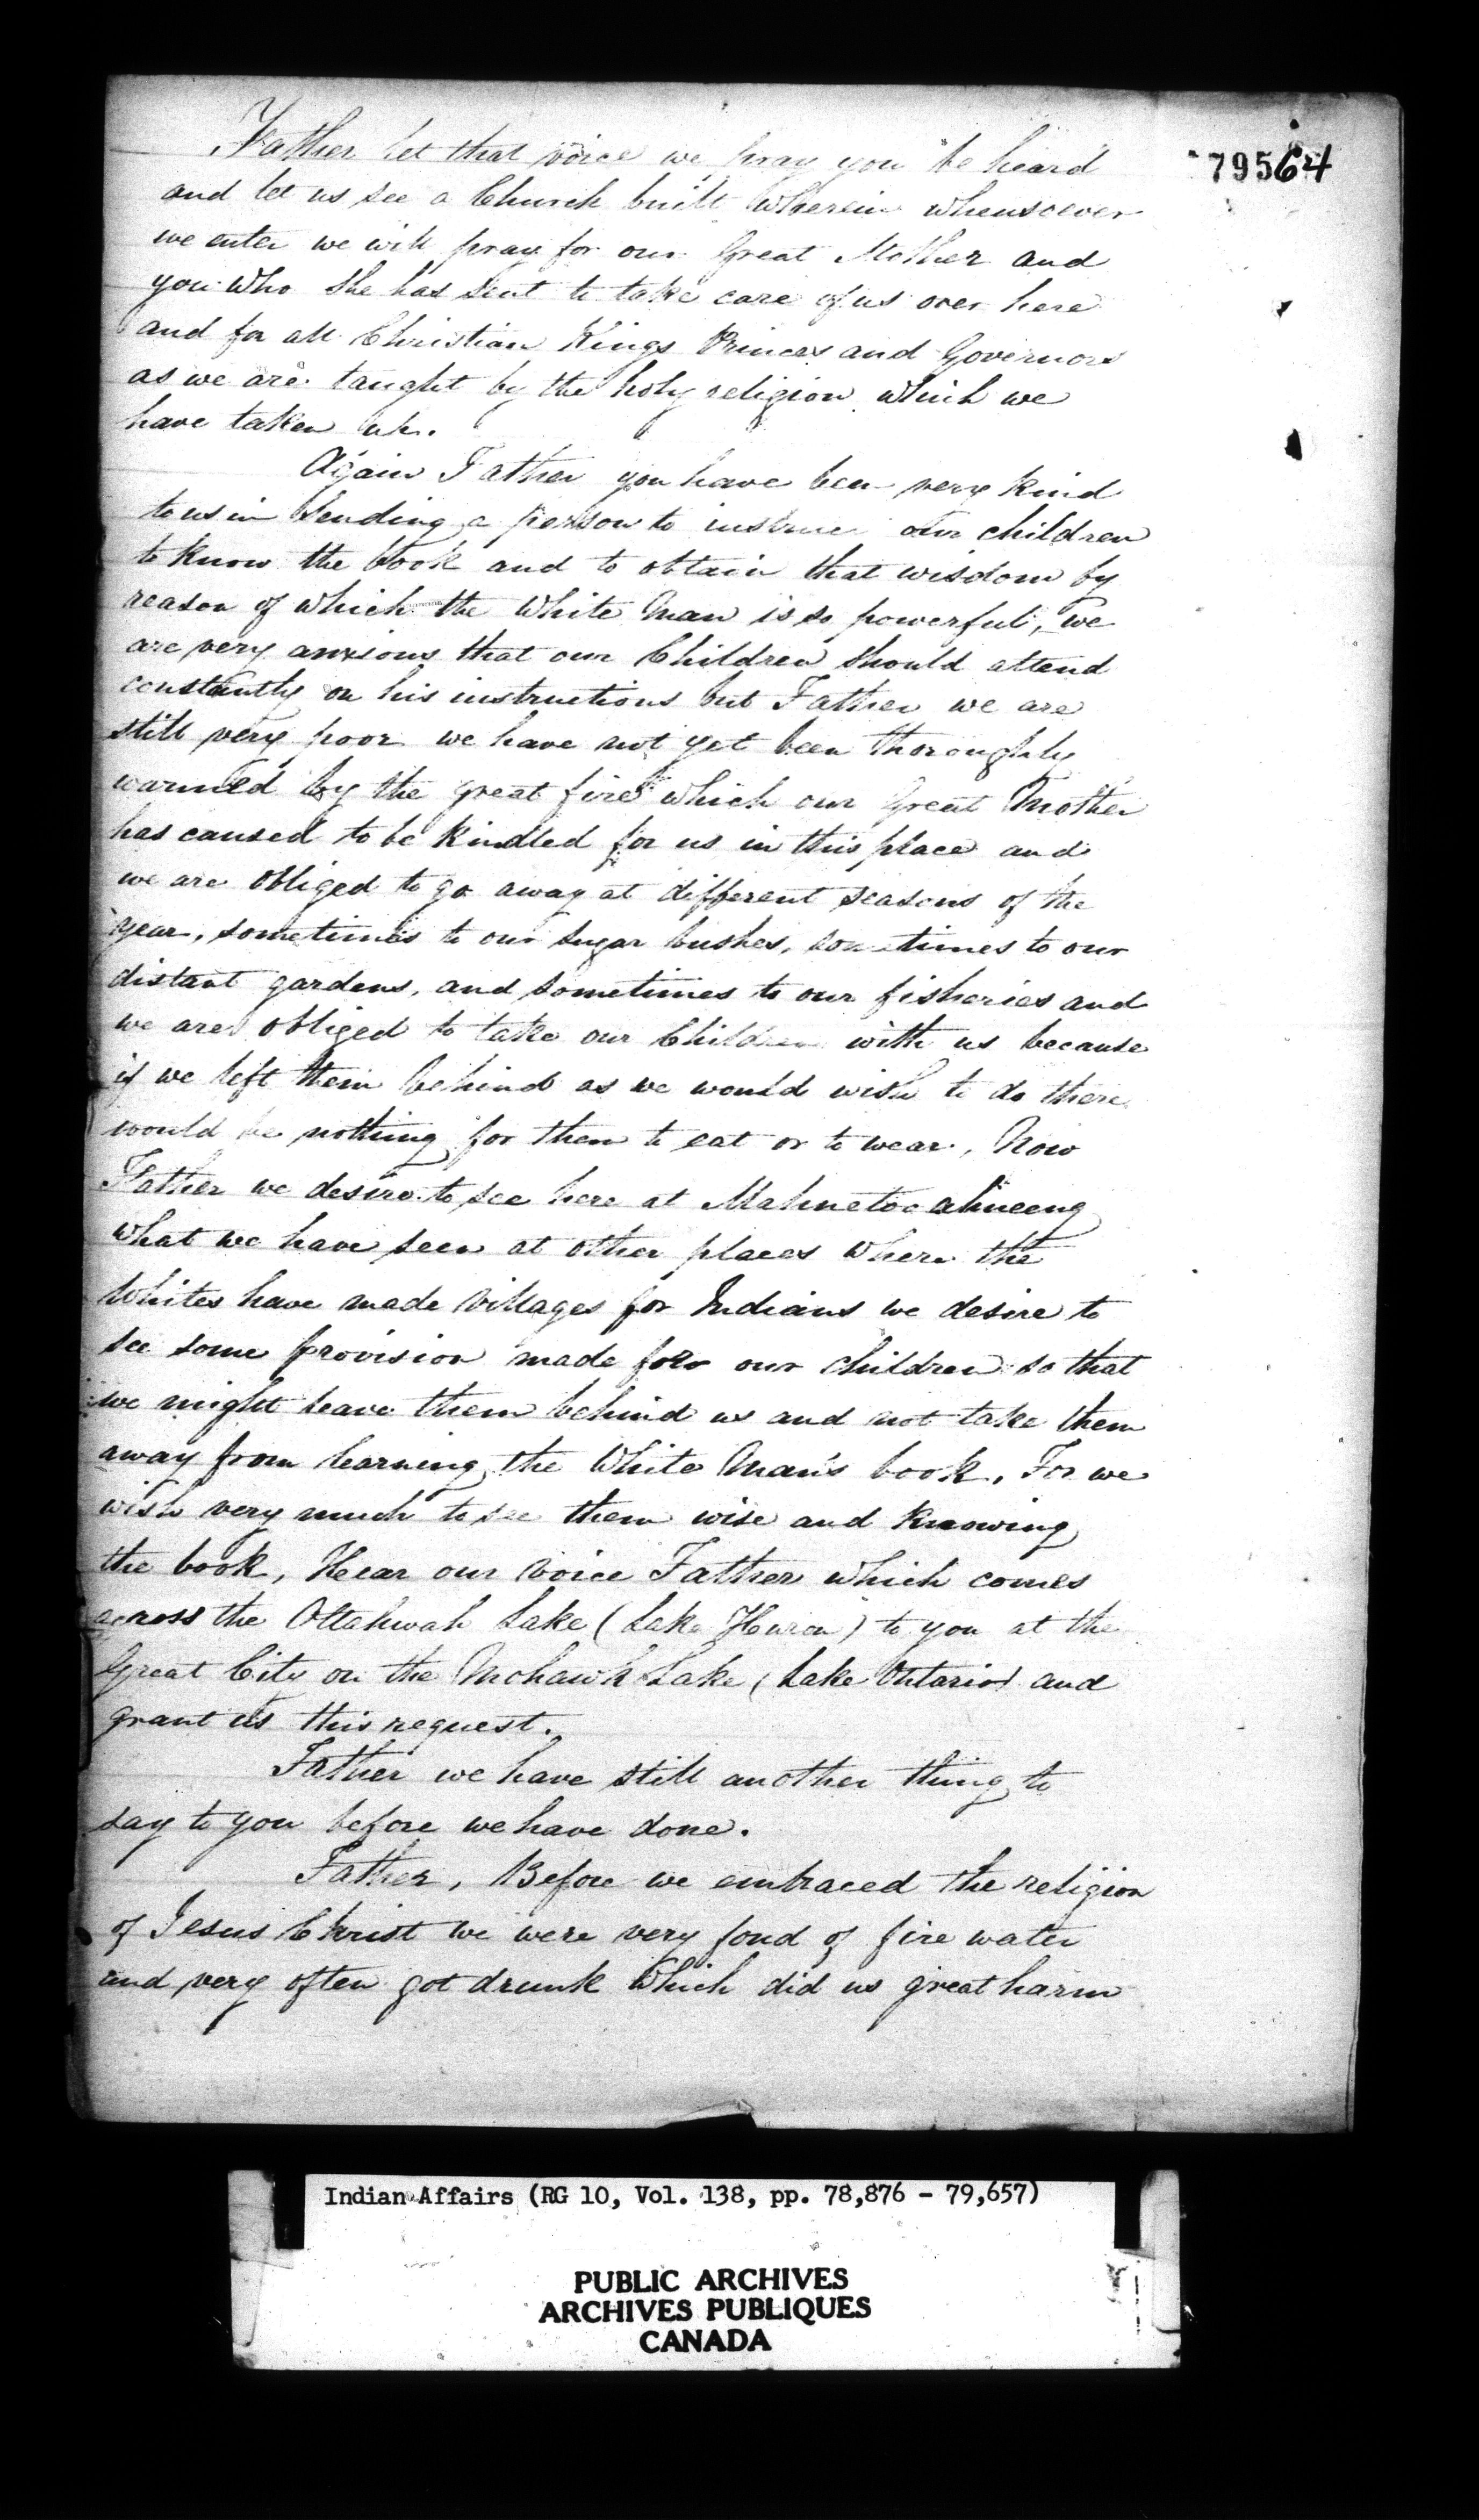 79564
Father let that voice we pray you be heard
and let us see a Church built wherein whensoever
we enter we will pray for our Great Mother and
you who she has sent to take care of us over here
and for all Christian Kings Princes and Governors
as we are taught by the holy religion which we
have taken up.
Again Father you have been very kind
to us in sending a person to instruct our children
to know the book and to obtain that wisdom by
reason of which the White Man is so powerful, we
are very anxious that our Children should attend
constantly on his instructions but Father we are
still very poor we have not yet been thoroughly
warmed by the great fire which our Great Mother
has caused to be kindled for us in this place and
we are obliged to go away at different seasons of the
year, sometimes to our sugar bushes, sometimes to our
distant gardens, and sometimes to our fisheries and
we are obliged to take our Children with us because
if we left them behind as we would wish to do there
would be nothing for them to eat or to wear. Now
Father we desire to see here at Mahnetooahneeng
what we have seen at other places where the
Whites have made villages for Indians we desire to
see some provision made for our children so that
we might leave them behind us and not take them
away from learning the White Man's book. For we
wish very much to see them wise and knowing
the book, Hear our voice Father which comes
across the Ottahwah Lake (Lake Huron) to you at the
Great City on the Mohawk Lake (Lake Ontario) and
grant us this request.
Father we have still another thing to
say to you before we have done.
Father, Before we embraced the religion
of Jesus Christ we were very fond of fire water
and very often got drunk which did us great harm
Indian Affairs (RG 10, Vol. 138, pp. 78,876 - 79,657)
PUBLIC ARCHIVES
ARCHIVES PUBLIQUES
CANADA